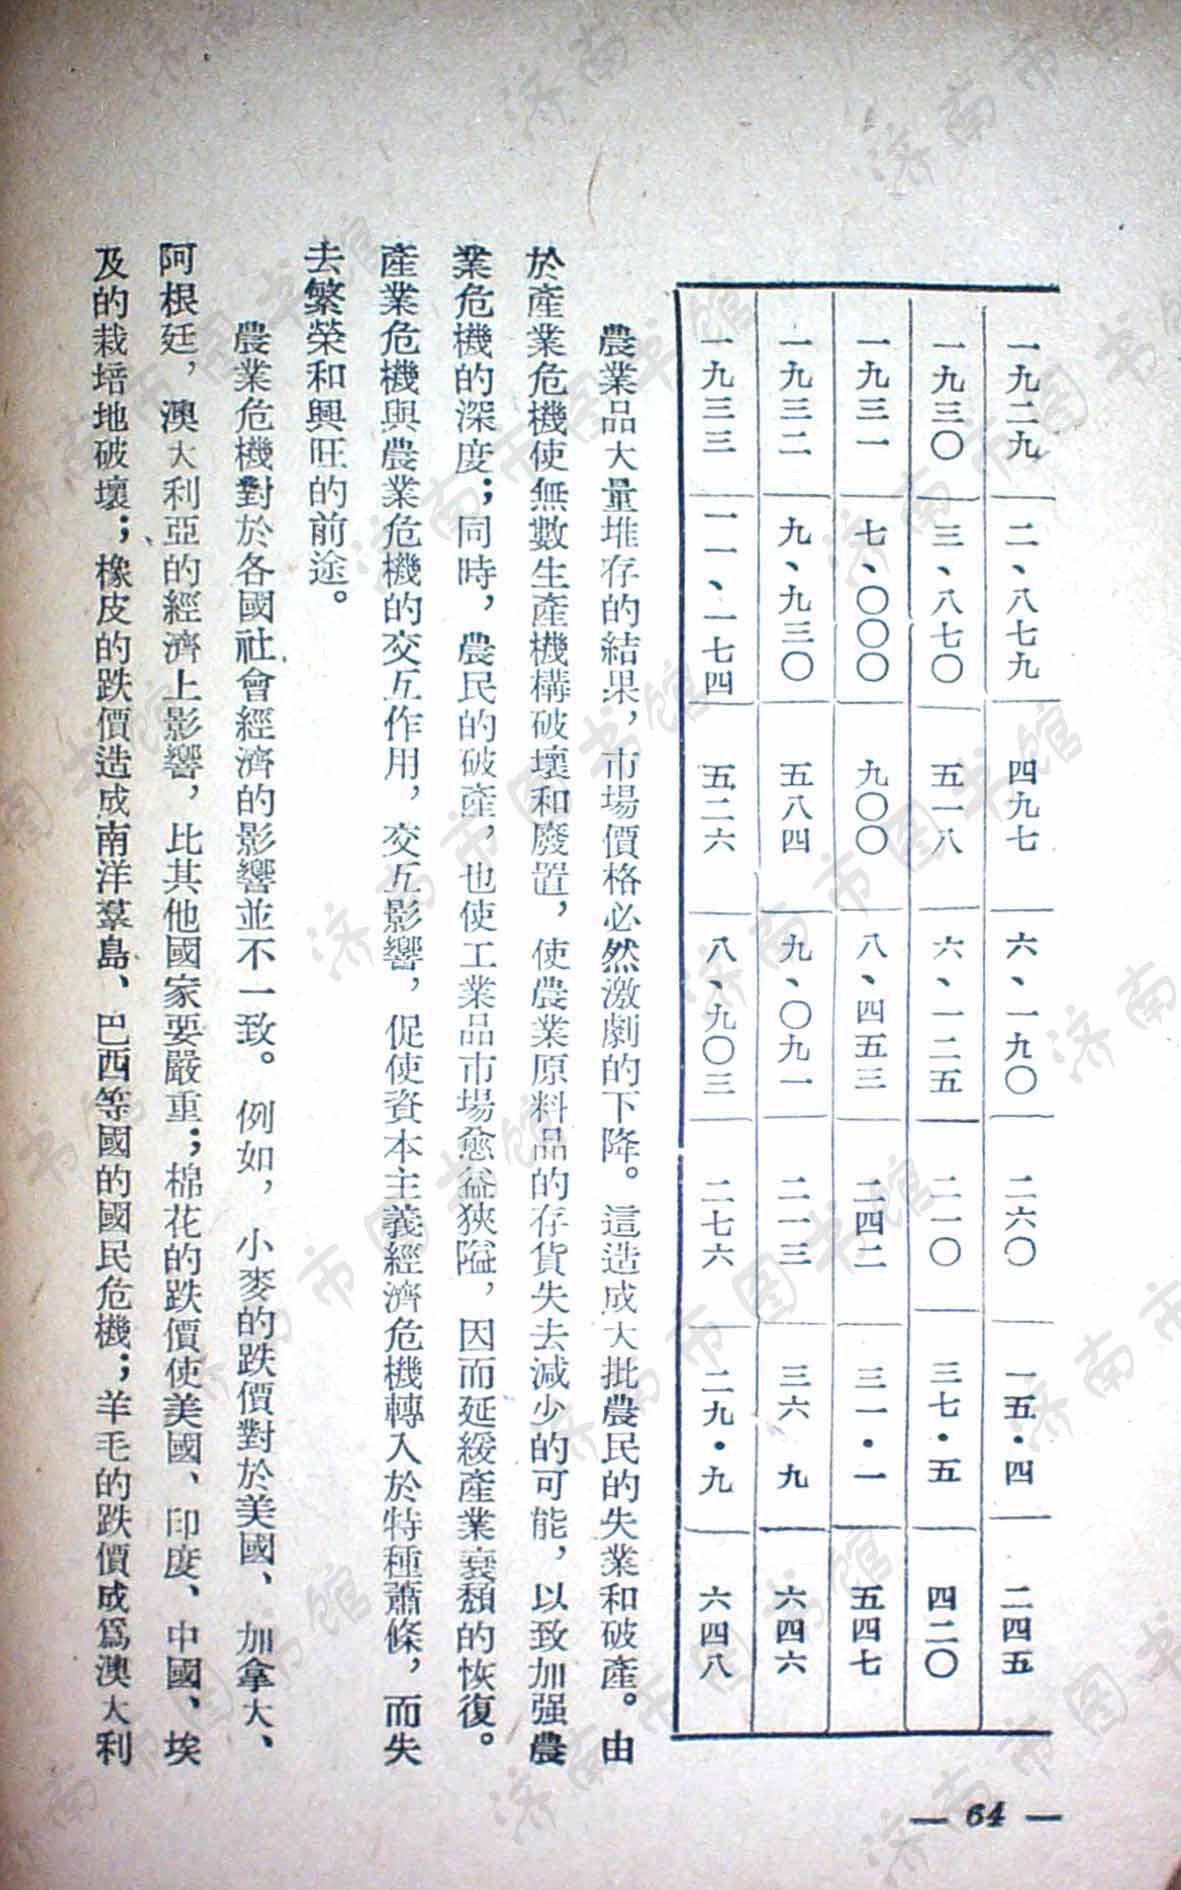 一九二九 二、八七九 四九七 六、一九〇 二六〇 一五·四 二四五
一九三〇 三、八七〇 五一八 六、一二五 二一〇 三七·五 四二〇
一九三一 七、〇〇〇 九〇〇 八、四五三 二四二 三一·一 五四七
一九三二 九、九三〇 五八四 九、〇九一 二一三 三六 九 六四六
一九三三 一一、一七四 五二六 八、九〇三 二七六 二九·九 六四八
農業品大量堆存的結果，市場價格必然激劇的下降。這造成大批農民的失業和破產。由
於產業危機使無數生產機構破壞和廢置，使農業原料品的存貨失去減少的可能，以致加强農
業危機的深度；同時，農民的破產，也使工業品市場愈益狹隘，因而延緩產業衰頹的恢復。
產業危機與農業危機的交互作用，交互影響，促使資本主義經濟危機轉入於特種蕭條，而失
去繁榮和興旺的前途。
農業危機對於各國社會經濟的影響並不一致。例如，小麥的跌價對於美國、加拿大、
阿根廷，澳大利亞的經濟上影響，比其他國家要嚴重；棉花的跌價使美國、印度、中國、埃
及的栽培地破壞；橡皮的跌價造成南洋羣島、巴西等國的國民危機；羊毛的跌價成爲澳大利
— 64 —
济南市图书馆